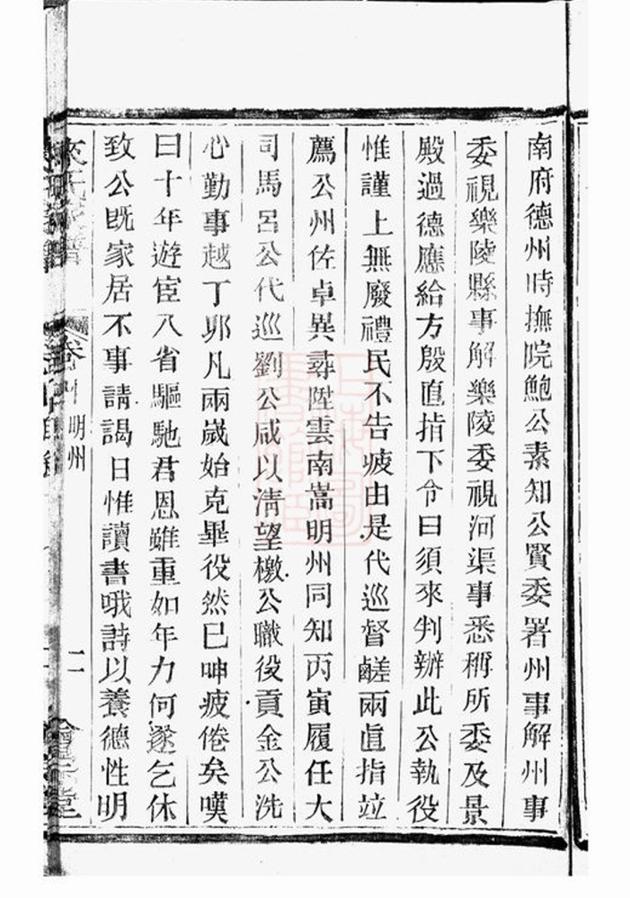 南府德州時撫院鮑公素知公賢委署州事解州事
委視樂陵縣事解樂陵委視河渠事悉稱所委及景
殿過德應給方殷直指下令曰須來判辦此公執役
惟謹上無廢禮民不告疲由是代巡督鹺兩直指竝
薦公州佐卓異尋陞雲南嵩明州同知丙寅履任大
司馬呂公代巡劉公咸以清望檄公職役貢金公洗
心勤事越丁卯凡兩歲始克畢役然已呻疲倦矣嘆
曰十年遊宦八省驅馳君恩雖重如年力何遂乞休
致公既家居不事請謁日惟讀書哦詩以養德性明
明州
二
會宗堂